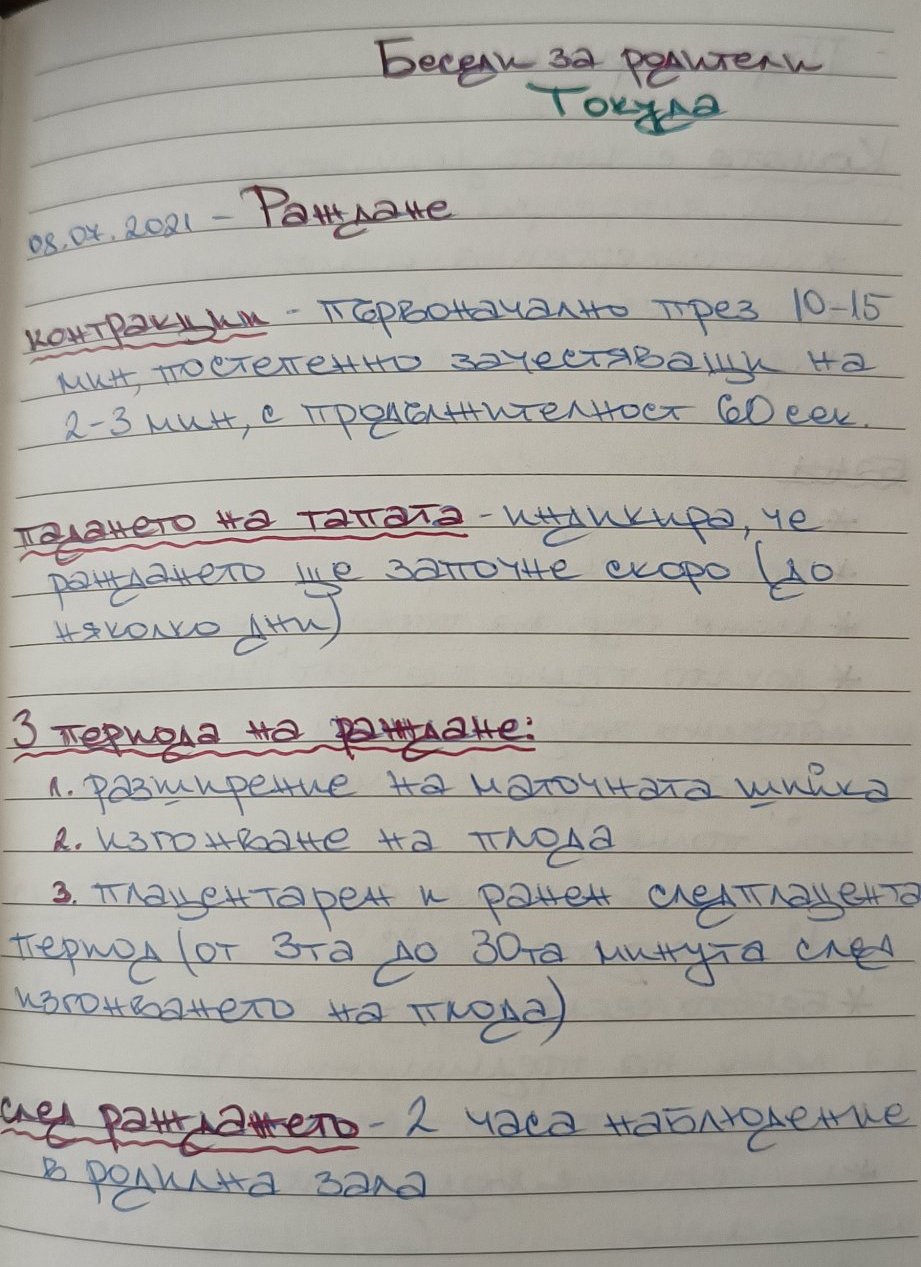 Беседи за родители
Токуда
08.07.2021 - Раждане
контракции - първоначално през 10-15
мин, постепенно зачестяващи на
2-3 мин, с продължителност 60 сек.
падането на тапата - индикира, че
раждането ще започне скоро (до
няколко дни)
3 периода на раждане:
1. разширение на маточната шийка
2. изгонване на плода
3. плацентарен и ранен следплацента
период (от 3та до 30та минута след
изгонването на плода)
след раждането - 2 часа наблюдение
в родилна зала